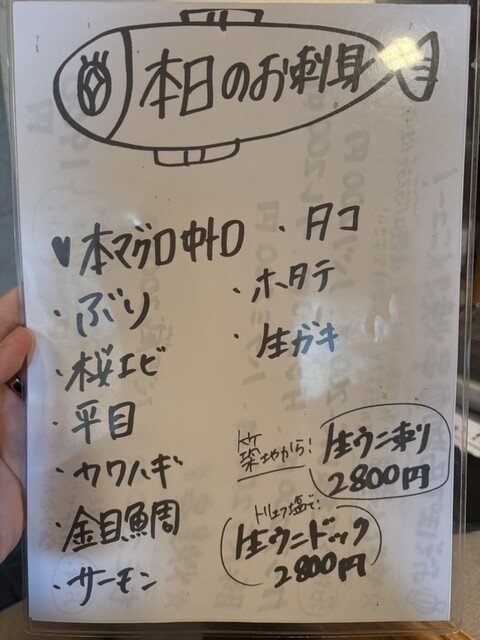 本日のお刺身
♥本マグロ中トロ
・ぶり
・桜エビ
・平目
・カワハギ
・金目鯛
・サーモン
・タコ
・ホタテ
・生ガキ
築地から!
生ウニ刺り
2800円
トリュフ塩で!
生ウニドック
2800円